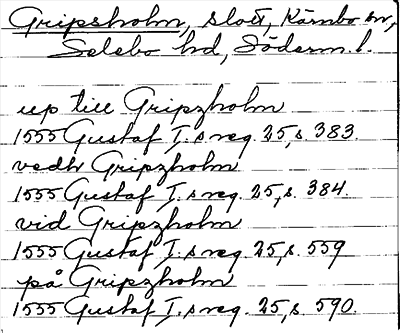 Gripsholm, slott, Kärnbo sn,
Selebo hd, Söderm. l.
up till Gripzholm
1555 Gustaf I.s reg. 25, s. 383.
vedh Gripzholm
1555 Gustaf I.s reg. 25, s. 384.
vid Gripzholm
1555 Gustaf I.s reg. 25, s. 559
på Gripzholm
1555 Gustaf I.s reg. 25, s. 590.